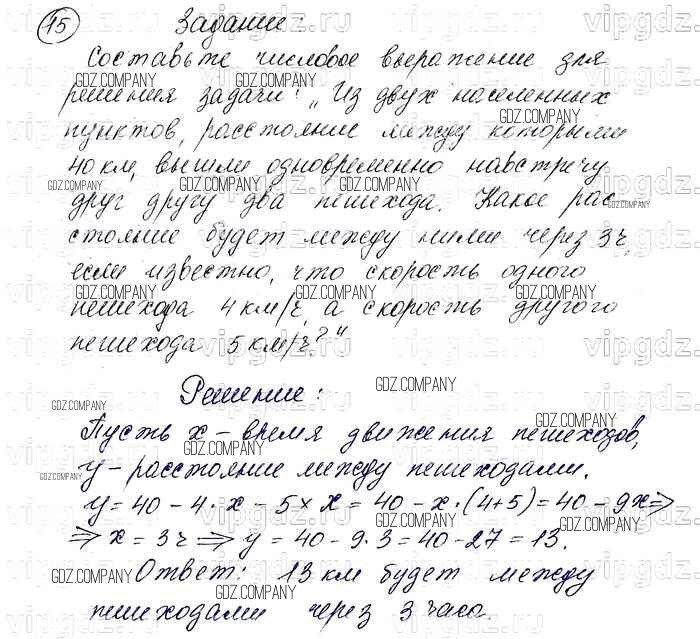 15 Задание:
Составьте числовое выражение для
решения задачи: „Из двух населенных
пунктов, расстояние между которыми
40 км, вышли одновременно навстречу
друг другу два пешехода. Какое рас
стояние будет между ними через 3 ч,
если известно, что скорость одного
пешехода 4 км/ч, а скорость другого
пешехода 5 км/ч?"
Решение:
Пусть x – время движения пешеходов,
y – расстояние между пешеходами.
y = 40 – 4 · x – 5 × x = 40 – x · (4+5) = 40 – 9x ⇒
⇒ x = 3 ч ⇒ y = 40 – 9 · 3 = 40 – 27 = 13.
Ответ: 13 км будет между
пешеходами через 3 часа.
GDZ.COMPANY
vipgdz.ru